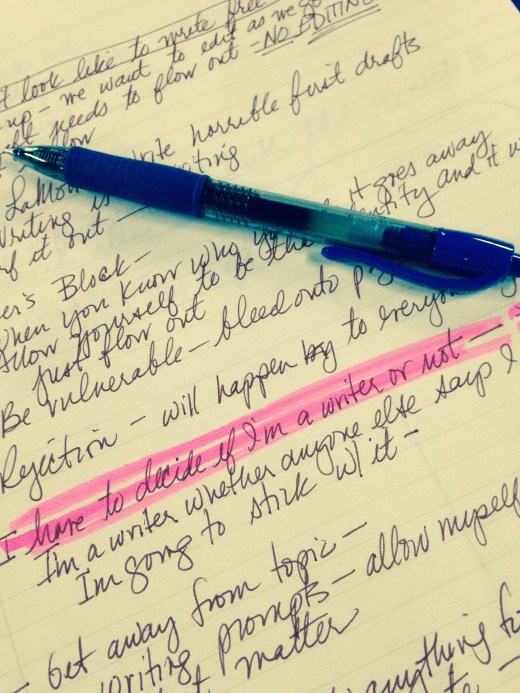 look like to write free
up - we want to edit as we go
needs to flow out - NO EDITING
flow
write horrible first drafts
Writing is
it out -
Block -
it goes away
When you know who
identity and it
Allow yourself to be tha
just flow out
Be vulnerable - bleed onto
Rejection - will happen to everyone
I have to decide if I'm a writer or not -
I'm a writer whether anyone else says I
Im going to stick w/ it -
- Get away from topic -
writing prompts - allow myself
matter
anything